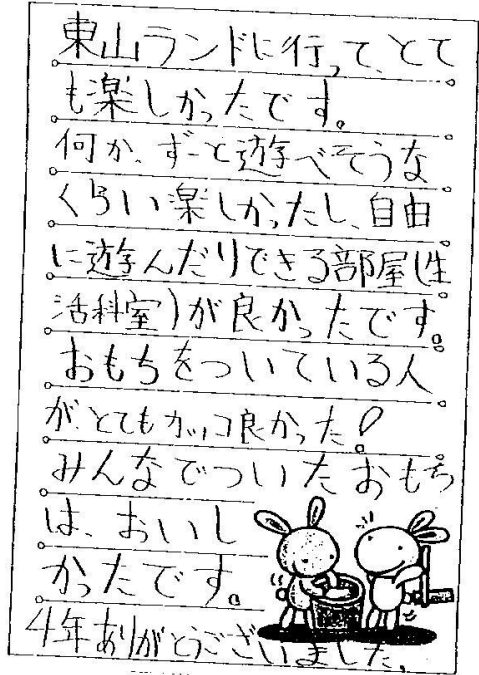 東山ランドに行って、とて
も楽しかったです。
何か、ずーと遊べそうな
くらい楽しかったし、自由
に遊んだりできる部屋(生
活科室)が良かったです。
おもちをついている人
が、とてもカッコ良かった!
みんなでついたおもち
は、おいし
かったです。
4年ありがとうございました。